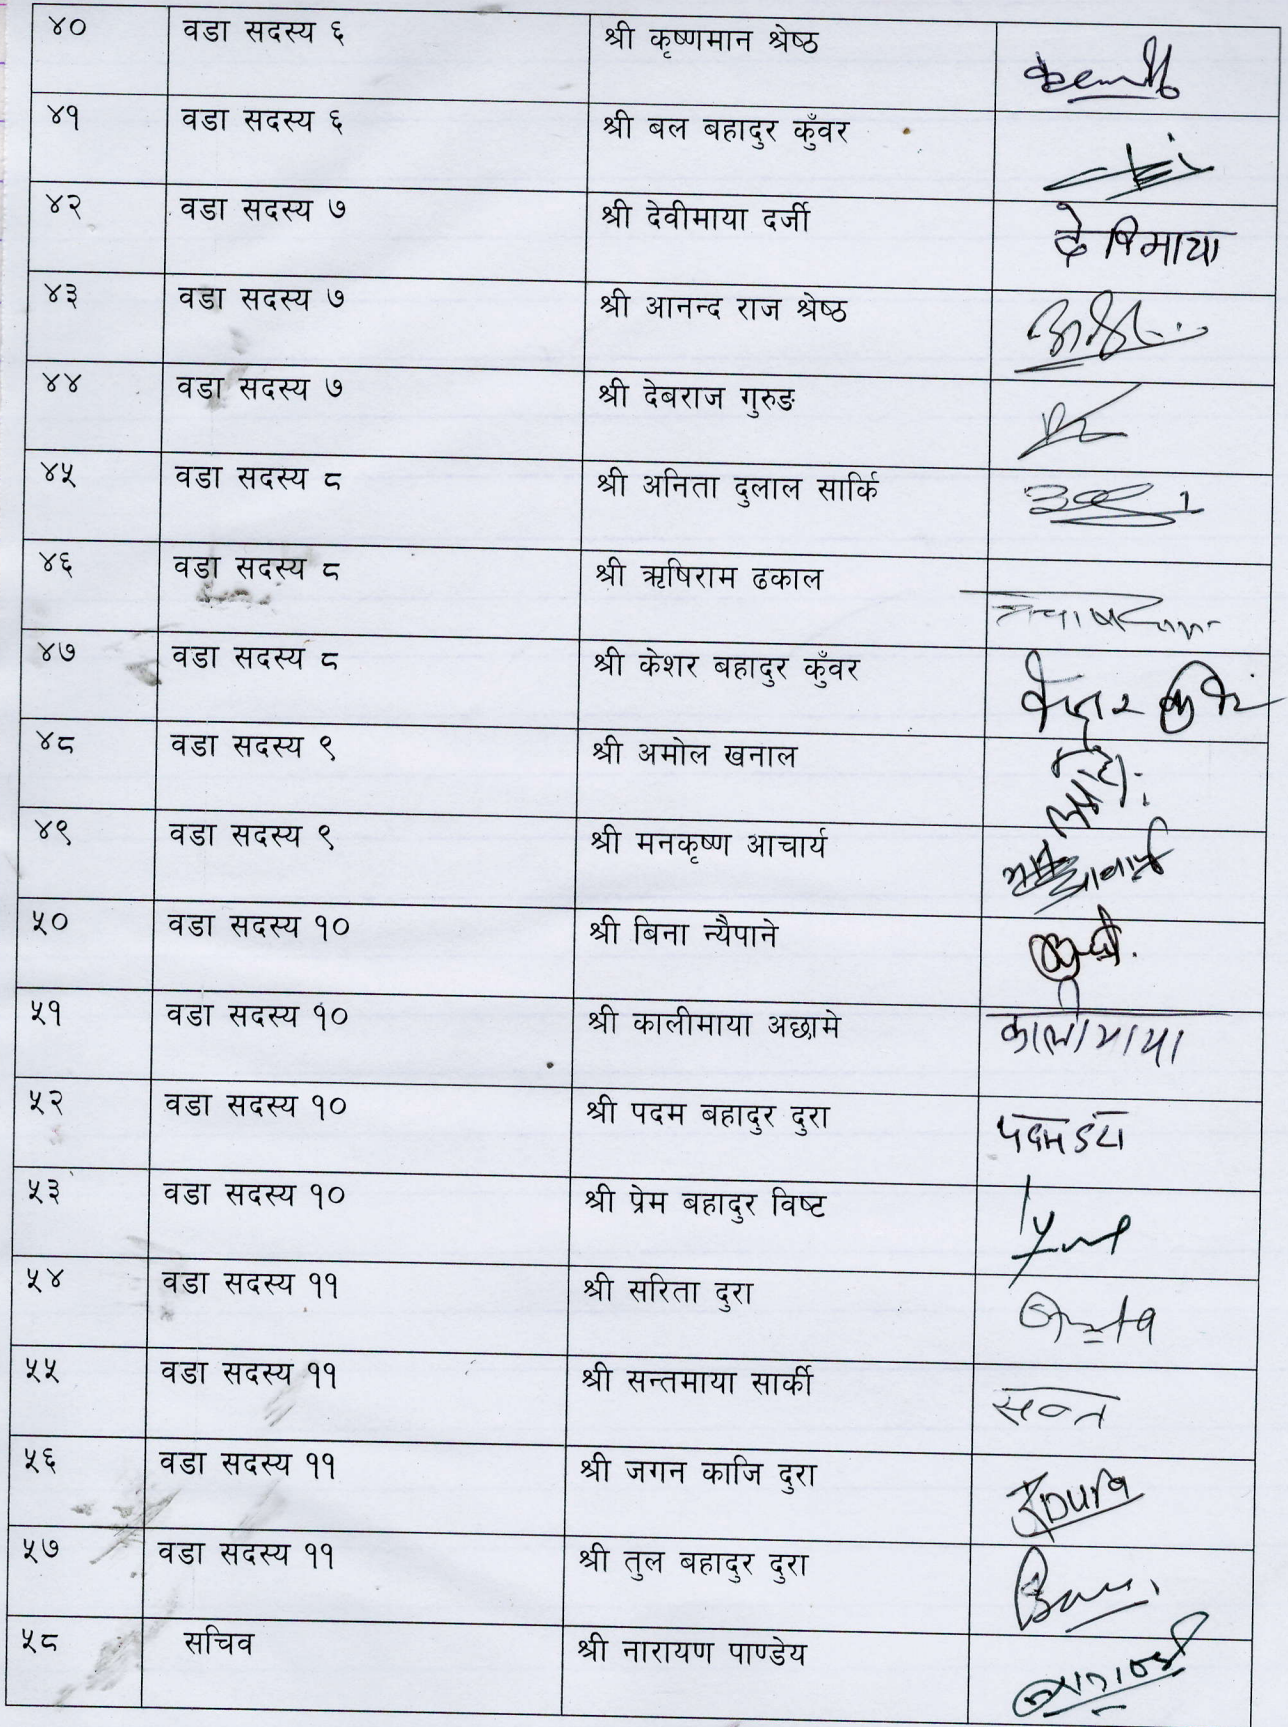 ४० वडा सदस्य ६ श्री कृष्णमान श्रेष्ठ
४१ वडा सदस्य ६ श्री बल बहादुर कुँवर
४२ वडा सदस्य ७ श्री देवीमाया दर्जी देविमाया
४३ वडा सदस्य ७ श्री आनन्द राज श्रेष्ठ
४४ वडा सदस्य ७ श्री देबराज गुरुङ
४५ वडा सदस्य ८ श्री अनिता दुलाल सार्कि
४६ वडा सदस्य ८ श्री ऋषिराम ढकाल
४७ वडा सदस्य ८ श्री केशर बहादुर कुँवर
४८ वडा सदस्य ९ श्री अमोल खनाल
४९ वडा सदस्य ९ श्री मनकृष्ण आचार्य
५० वडा सदस्य १० श्री बिना न्यैपाने
५१ वडा सदस्य १० श्री कालीमाया अछामे कालीमाया
५२ वडा सदस्य १० श्री पदम बहादुर दुरा
५३ वडा सदस्य १० श्री प्रेम बहादुर विष्ट
५४ वडा सदस्य ११ श्री सरिता दुरा
५५ वडा सदस्य ११ श्री सन्तमाया सार्की सन्त
५६ वडा सदस्य ११ श्री जगन काजि दुरा
५७ वडा सदस्य ११ श्री तुल बहादुर दुरा
५८ सचिव श्री नारायण पाण्डेय